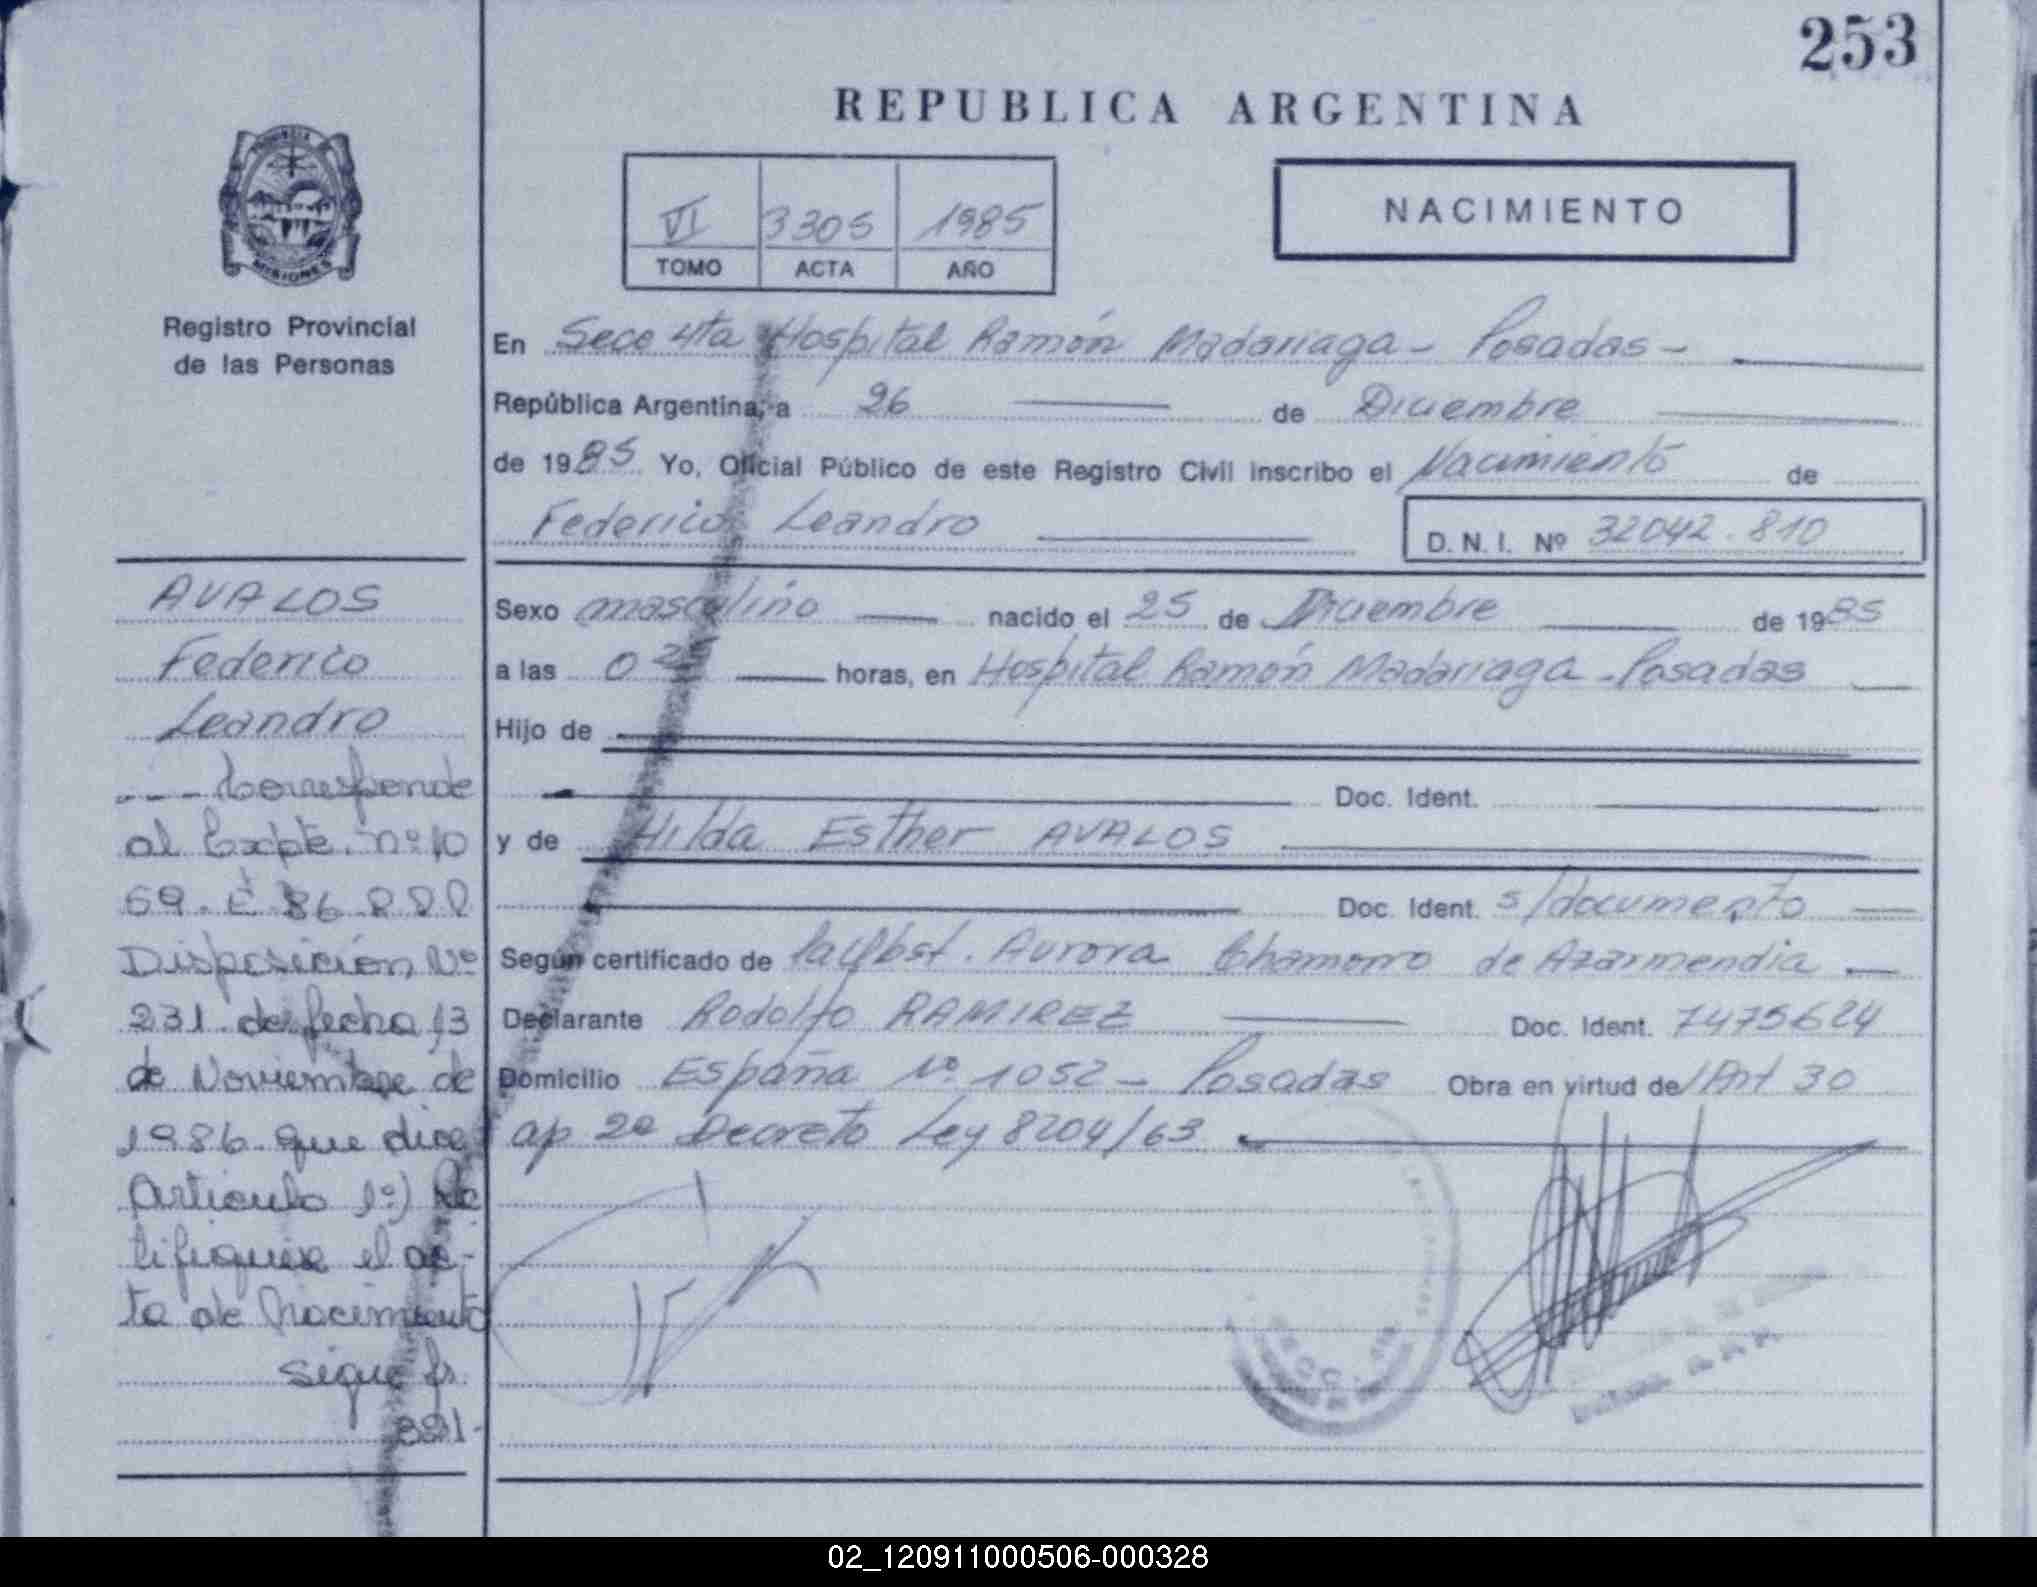 253
REPUBLICA ARGENTINA
PROVINCIA
MISIONES
Registro Provincial
de las Personas
VI 3305 1985
TOMO ACTA AÑO
NACIMIENTO
En Secc 4ta Hospital Ramón Madariaga - Posadas -
República Argentina, a 26 de Diciembre
de 1985 Yo, Oficial Público de este Registro Civil inscribo el Nacimiento de
Federico Leandro D. N. I. Nº 32042.810
Sexo masculino nacido el 25 de Diciembre de 1985
a las 02 horas, en Hospital Ramón Madariaga - Posadas
Hijo de
Doc. Ident.
y de Hilda Esther AVALOS
Doc. Ident. s/documento
Según certificado de Obst. Aurora Chamorro de Azarmendia
Declarante Rodolfo RAMIREZ Doc. Ident. 7475624
Domicilio España Nº 1052 - Posadas Obra en virtud de Art 30
ap 2º Decreto Ley 8204/63
AVALOS
Federico
Leandro
--- Corresponde
al Expte. nº 10
59.
Disposición Nº
231 de fecha 13
de Noviembre de
1986 que dice
Articulo 1º) Rec
tifiquese el ac-
ta de Nacimiento
sigue fs.
381-
02_120911000506-000328